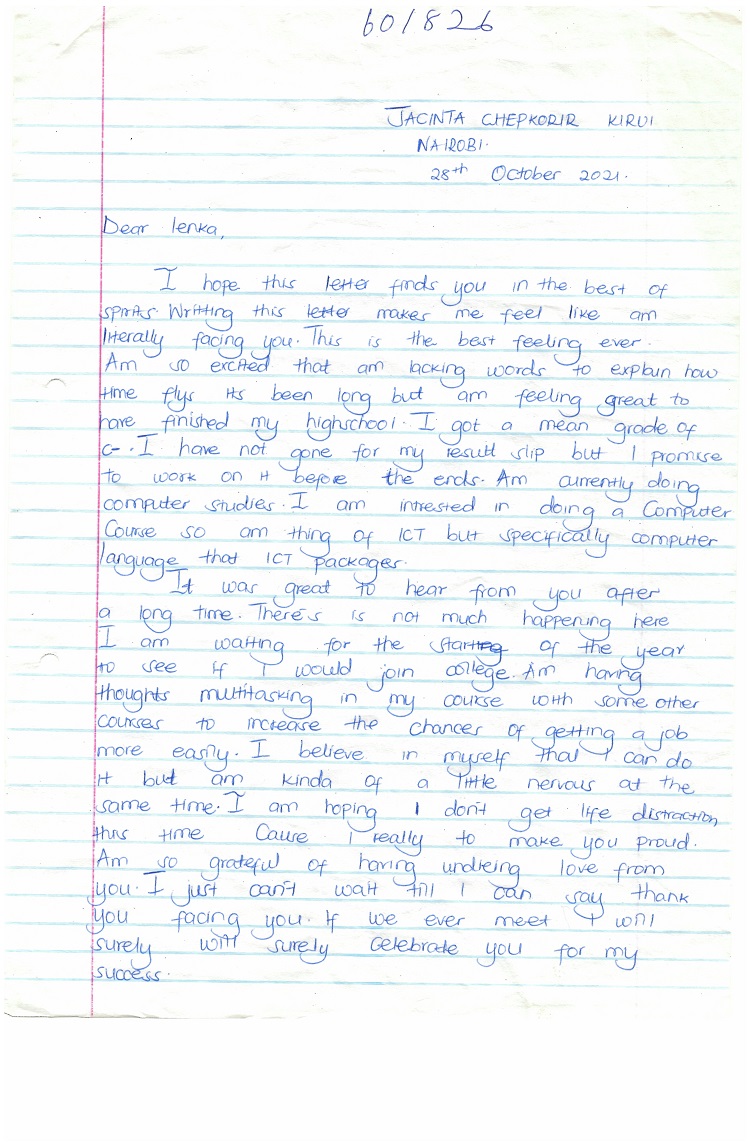 601826
JACINTA CHEPKORIR KIRUI
NAIROBI.
28th October 2021.
Dear lenka,
I hope this letter finds you in the best of
spirits. Writting this letter makes me feel like am
literally facing you. This is the best feeling ever.
Am so excited that am lacking words to explain how
time flys its been long but am feeling great to
have finished my highschool. I got a mean grade of
C-. I have not gone for my result slip but I promise
to work on it before the ends. Am currently doing
computer studies. I am intrested in doing a Computer
Course so am thing of ICT but specifically computer
language that ICT packages.
It was great to hear from you after
a long time. There's is not much happening here
I am waiting for the starting of the year
to see if I would join college. Am having
thoughts multitasking in my course with some other
courses to increase the chances of getting a job
more easily. I believe in myself that I can do
it but am kinda of a little nervous at the
same time. I am hoping I don't get life distraction
this time Cause I really to make you proud.
Am so grateful of having undieing love from
you. I just can't wait till I can say thank
you facing you. If we ever meet I will
surely will surely celebrate you for my
success.